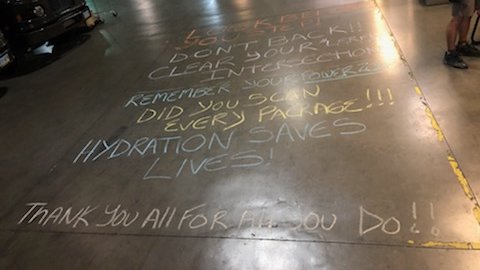 DON'T BACK!!
CLEAR YOUR
INTERSECTION
REMEMBER YOUR POWER ZONE
DID YOU SCAN
EVERY PACKAGE!!!
HYDRATION SAVES
LIVES!
THANK YOU ALL FOR ALL YOU DO!!